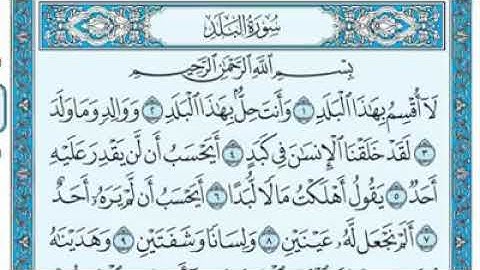 سُورَةُ البَلَدِ
بِسْمِ اللَّهِ الرَّحْمَٰنِ الرَّحِيمِ
لَآ أُقْسِمُ بِهَٰذَا ٱلْبَلَدِ ١ وَأَنتَ حِلٌّۢ بِهَٰذَا ٱلْبَلَدِ ٢ وَوَالِدٍ وَمَا وَلَدَ
٣ لَقَدْ خَلَقْنَا ٱلْإِنسَٰنَ فِى كَبَدٍ ٤ أَيَحْسَبُ أَن لَّن يَقْدِرَ عَلَيْهِ
أَحَدٌ ٥ يَقُولُ أَهْلَكْتُ مَالًا لُّبَدًا ٦ أَيَحْسَبُ أَن لَّمْ يَرَهُۥٓ أَحَدٌ
٧ أَلَمْ نَجْعَل لَّهُۥ عَيْنَيْنِ ٨ وَلِسَانًا وَشَفَتَيْنِ ٩ وَهَدَيْنَٰهُ